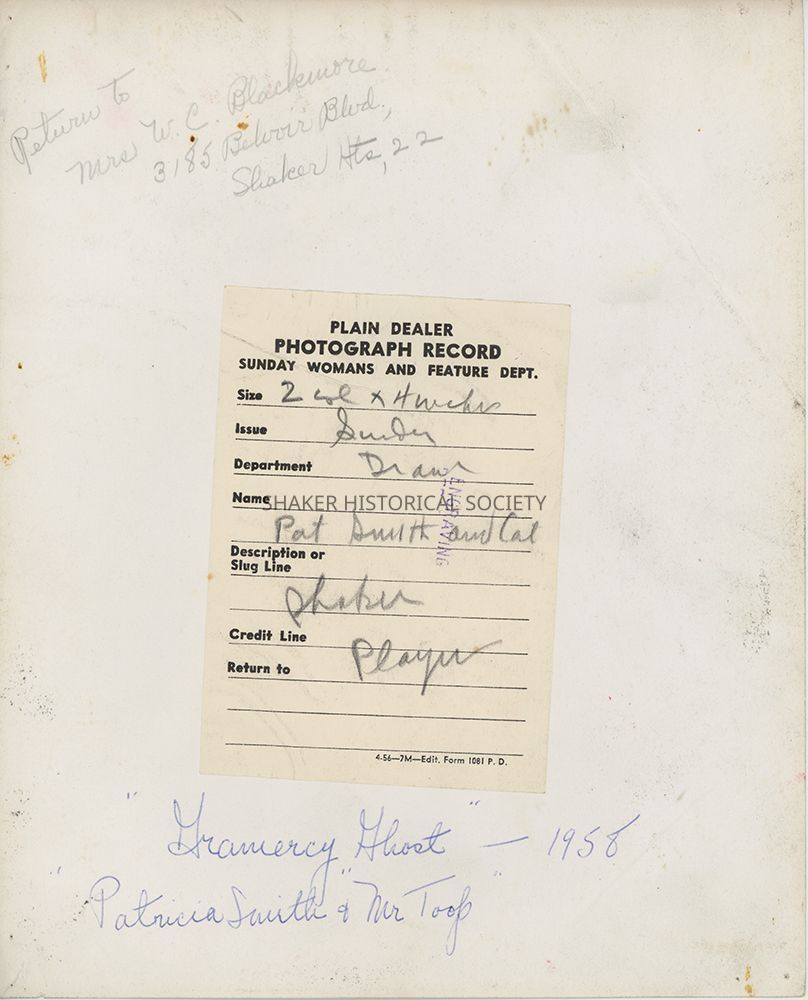 Return to
Mrs W. C. Blackmore
3185 Belvoir Blvd.,
Shaker Hts, 22
PLAIN DEALER
PHOTOGRAPH RECORD
SUNDAY WOMANS AND FEATURE DEPT.
Size 2 col x 4 inches
Issue Sunday
Department Drama
Name
SHAKER HISTORICAL SOCIETY
ENGRAVING
Pat Smith and Cat
Description or
Slug Line
Shaker
Credit Line
Player
Return to
4-56—7M—Edit. Form 1081 P. D.
"Gramercy Ghost" — 1958
"Patricia Smith" & "Mr Toof"